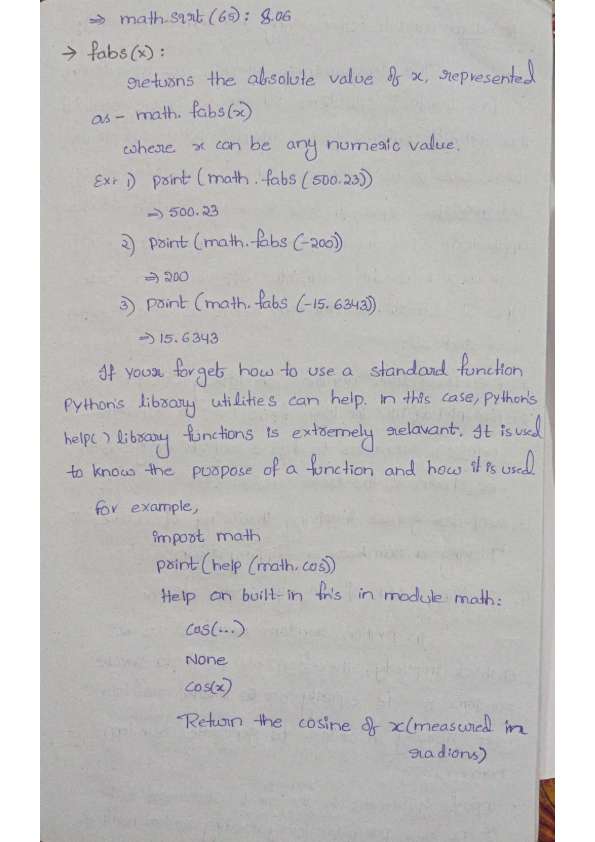 ⇒ math.sqrt(65): 8.06
→ fabs(x):
returns the absolute value of x, represented
as - math.fabs(x)
where x can be any numeric value.
Ex:- 1) print (math.fabs (500.23))
⇒ 500.23
2) print (math.fabs (-200))
⇒ 200
3) print (math.fabs (-15.6343))
⇒ 15.6343
If your forgets how to use a standard function
Python's library utilities can help. in this case, Python's
help() library functions is extremely relavant. It is used
to know the purpose of a function and how it is used.
for example,
import math
print (help (math.cos))
Help on built-in fn's in module math:
cos(...)
None
cos(x)
Return the cosine of x (measured in
radions)